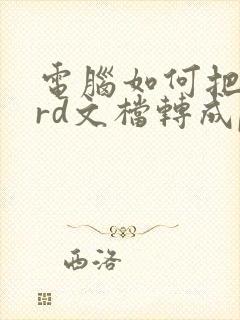 電腦如何把
rd文檔轉成
西洛